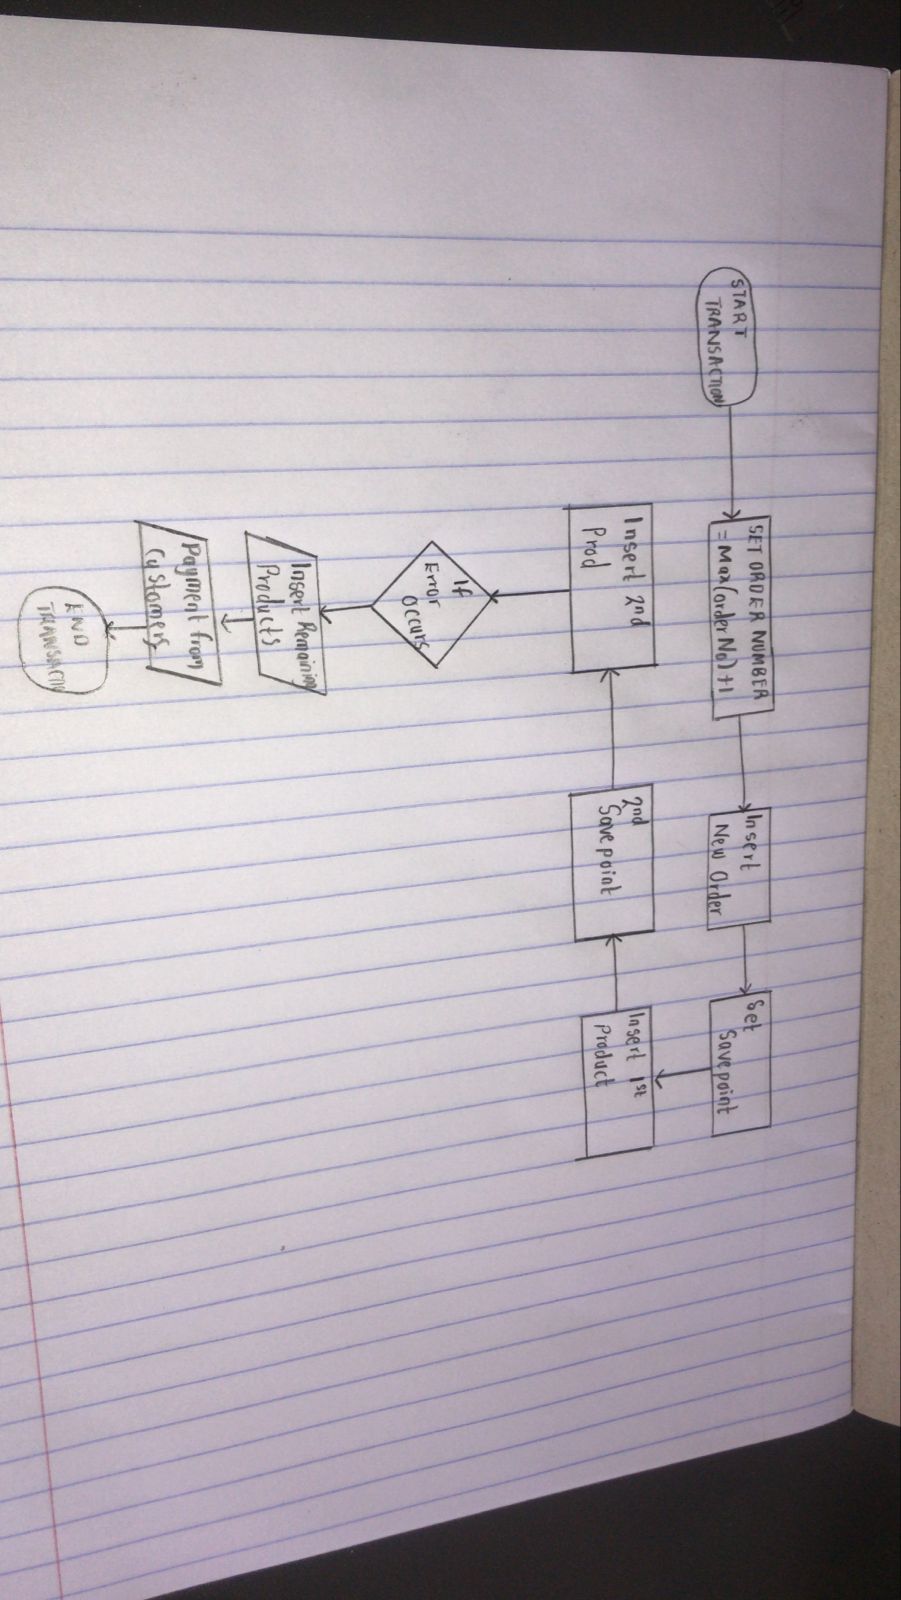 START
TRANSACTION
SET ORDER NUMBER
= Max(order No)+1
Insert
New Order
Set
Savepoint
Insert 1st
Product
2nd
Savepoint
Insert 2nd
Prod
If
Error
occurs
Insert Remaining
Products
Payment from
Customers
END